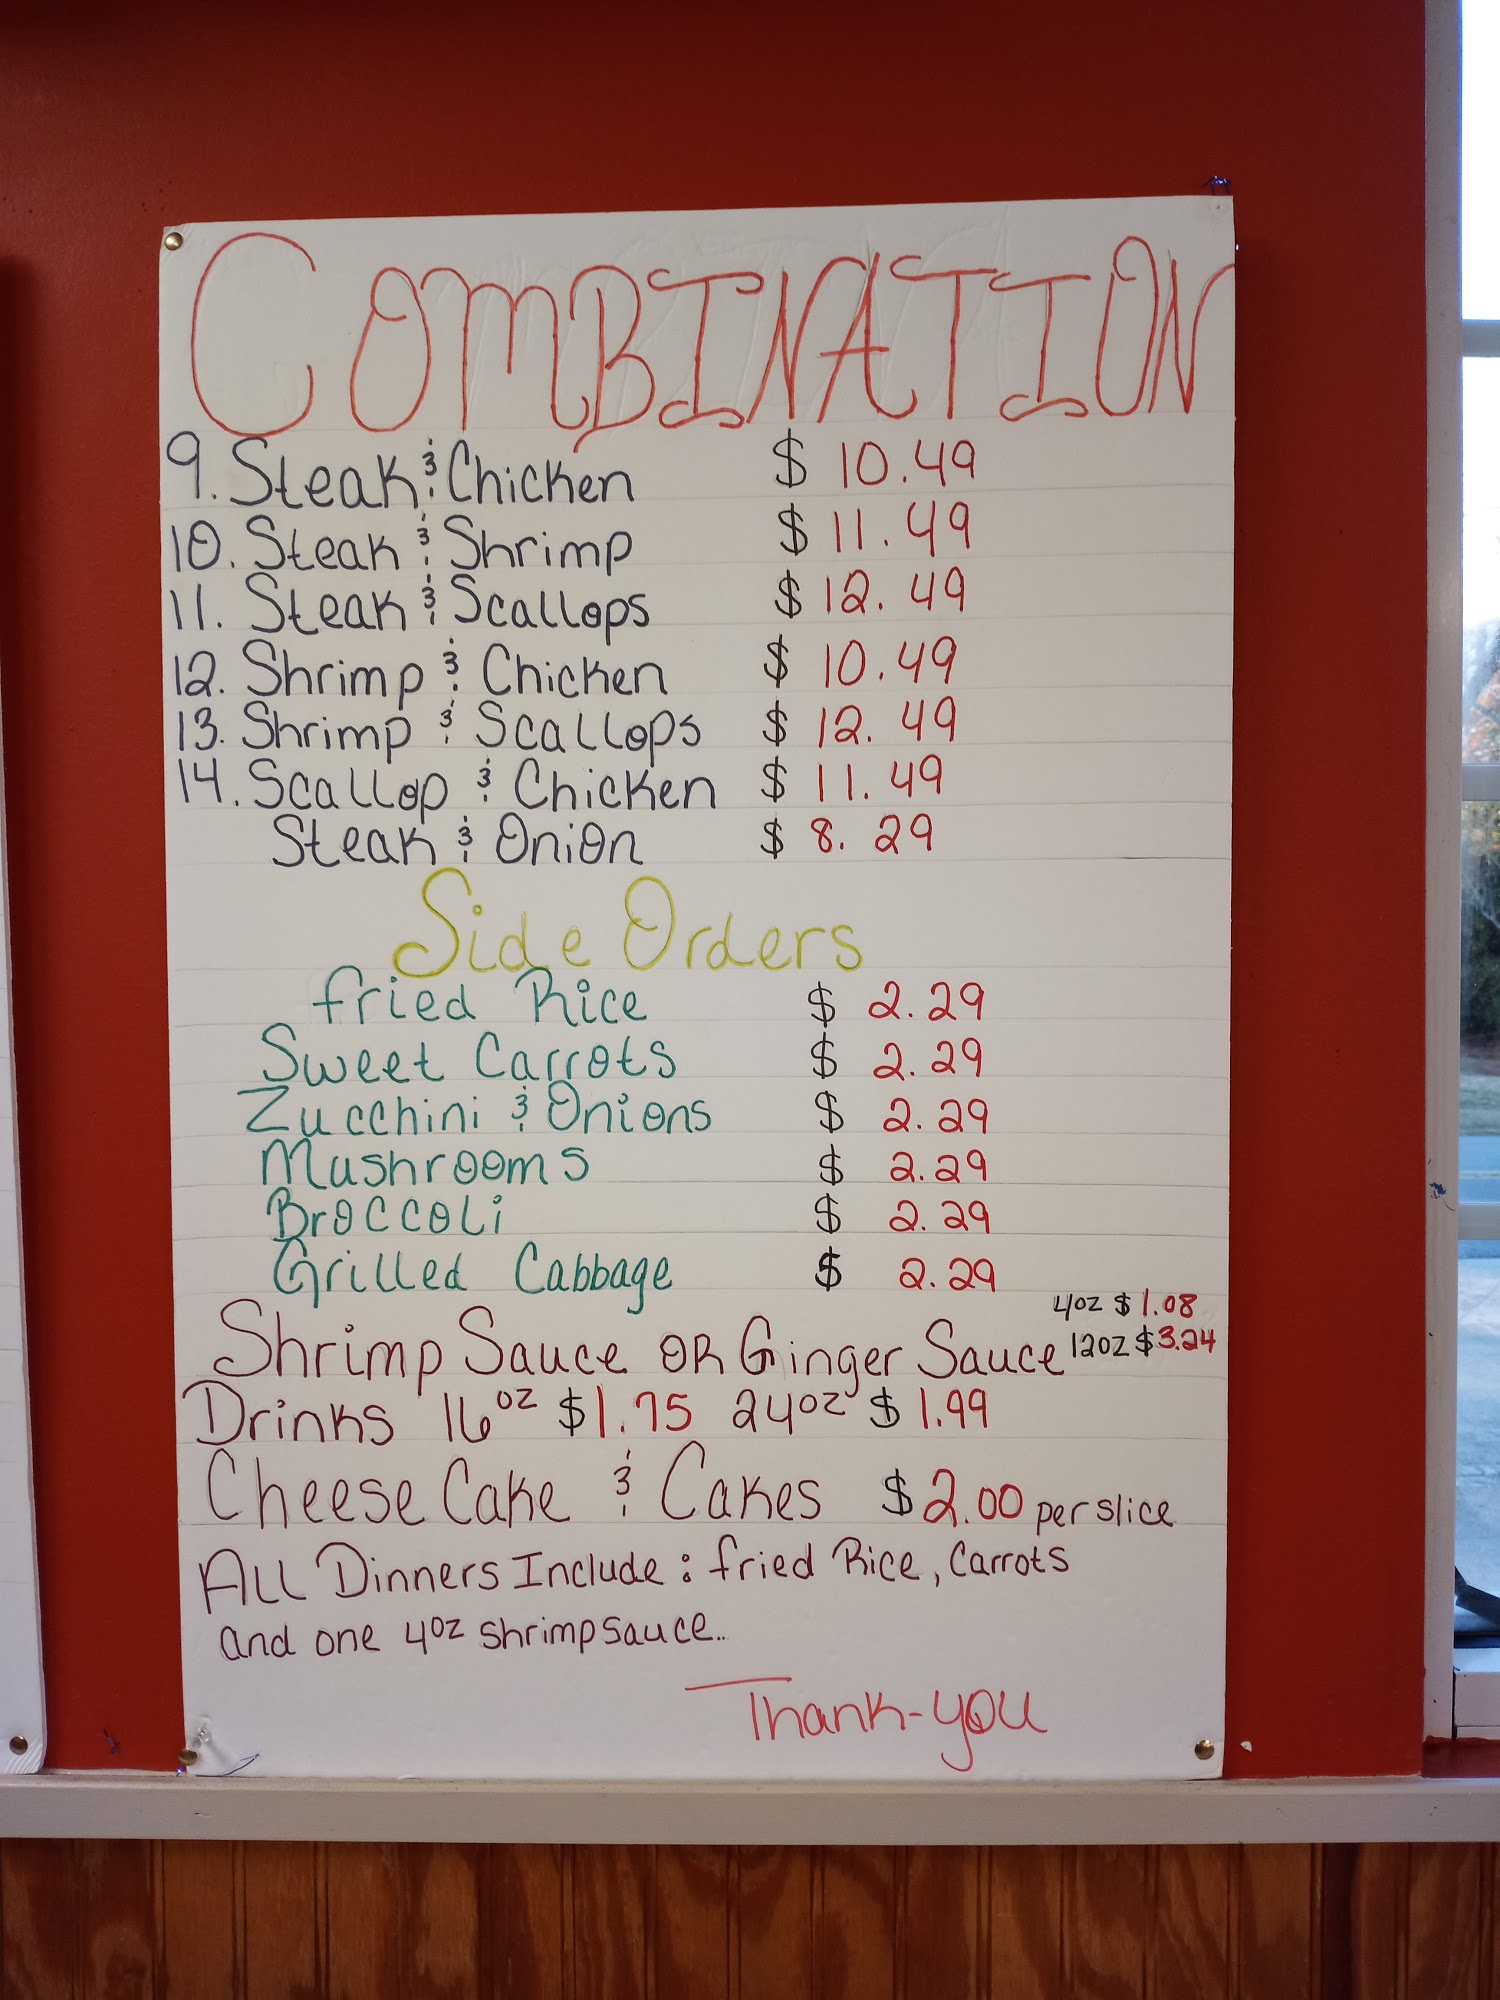 COMBINATION
9. Steak & Chicken $ 10.49
10. Steak & Shrimp $ 11.49
11. Steak & Scallops $ 12.49
12. Shrimp & Chicken $ 10.49
13. Shrimp & Scallops $ 12.49
14. Scallop & Chicken $ 11.49
Steak & Onion $ 8.29
Side Orders
fried Rice $ 2.29
Sweet Carrots $ 2.29
Zucchini & Onions $ 2.29
Mushrooms $ 2.29
Broccoli $ 2.29
Grilled Cabbage $ 2.29
4oz $1.08
Shrimp Sauce OR Ginger Sauce 12oz $3.24
Drinks 16oz $1.75 24oz $1.99
Cheese Cake & Cakes $2.00 per slice
All Dinners Include: fried Rice, Carrots
and one 4oz shrimp sauce..
Thank-you